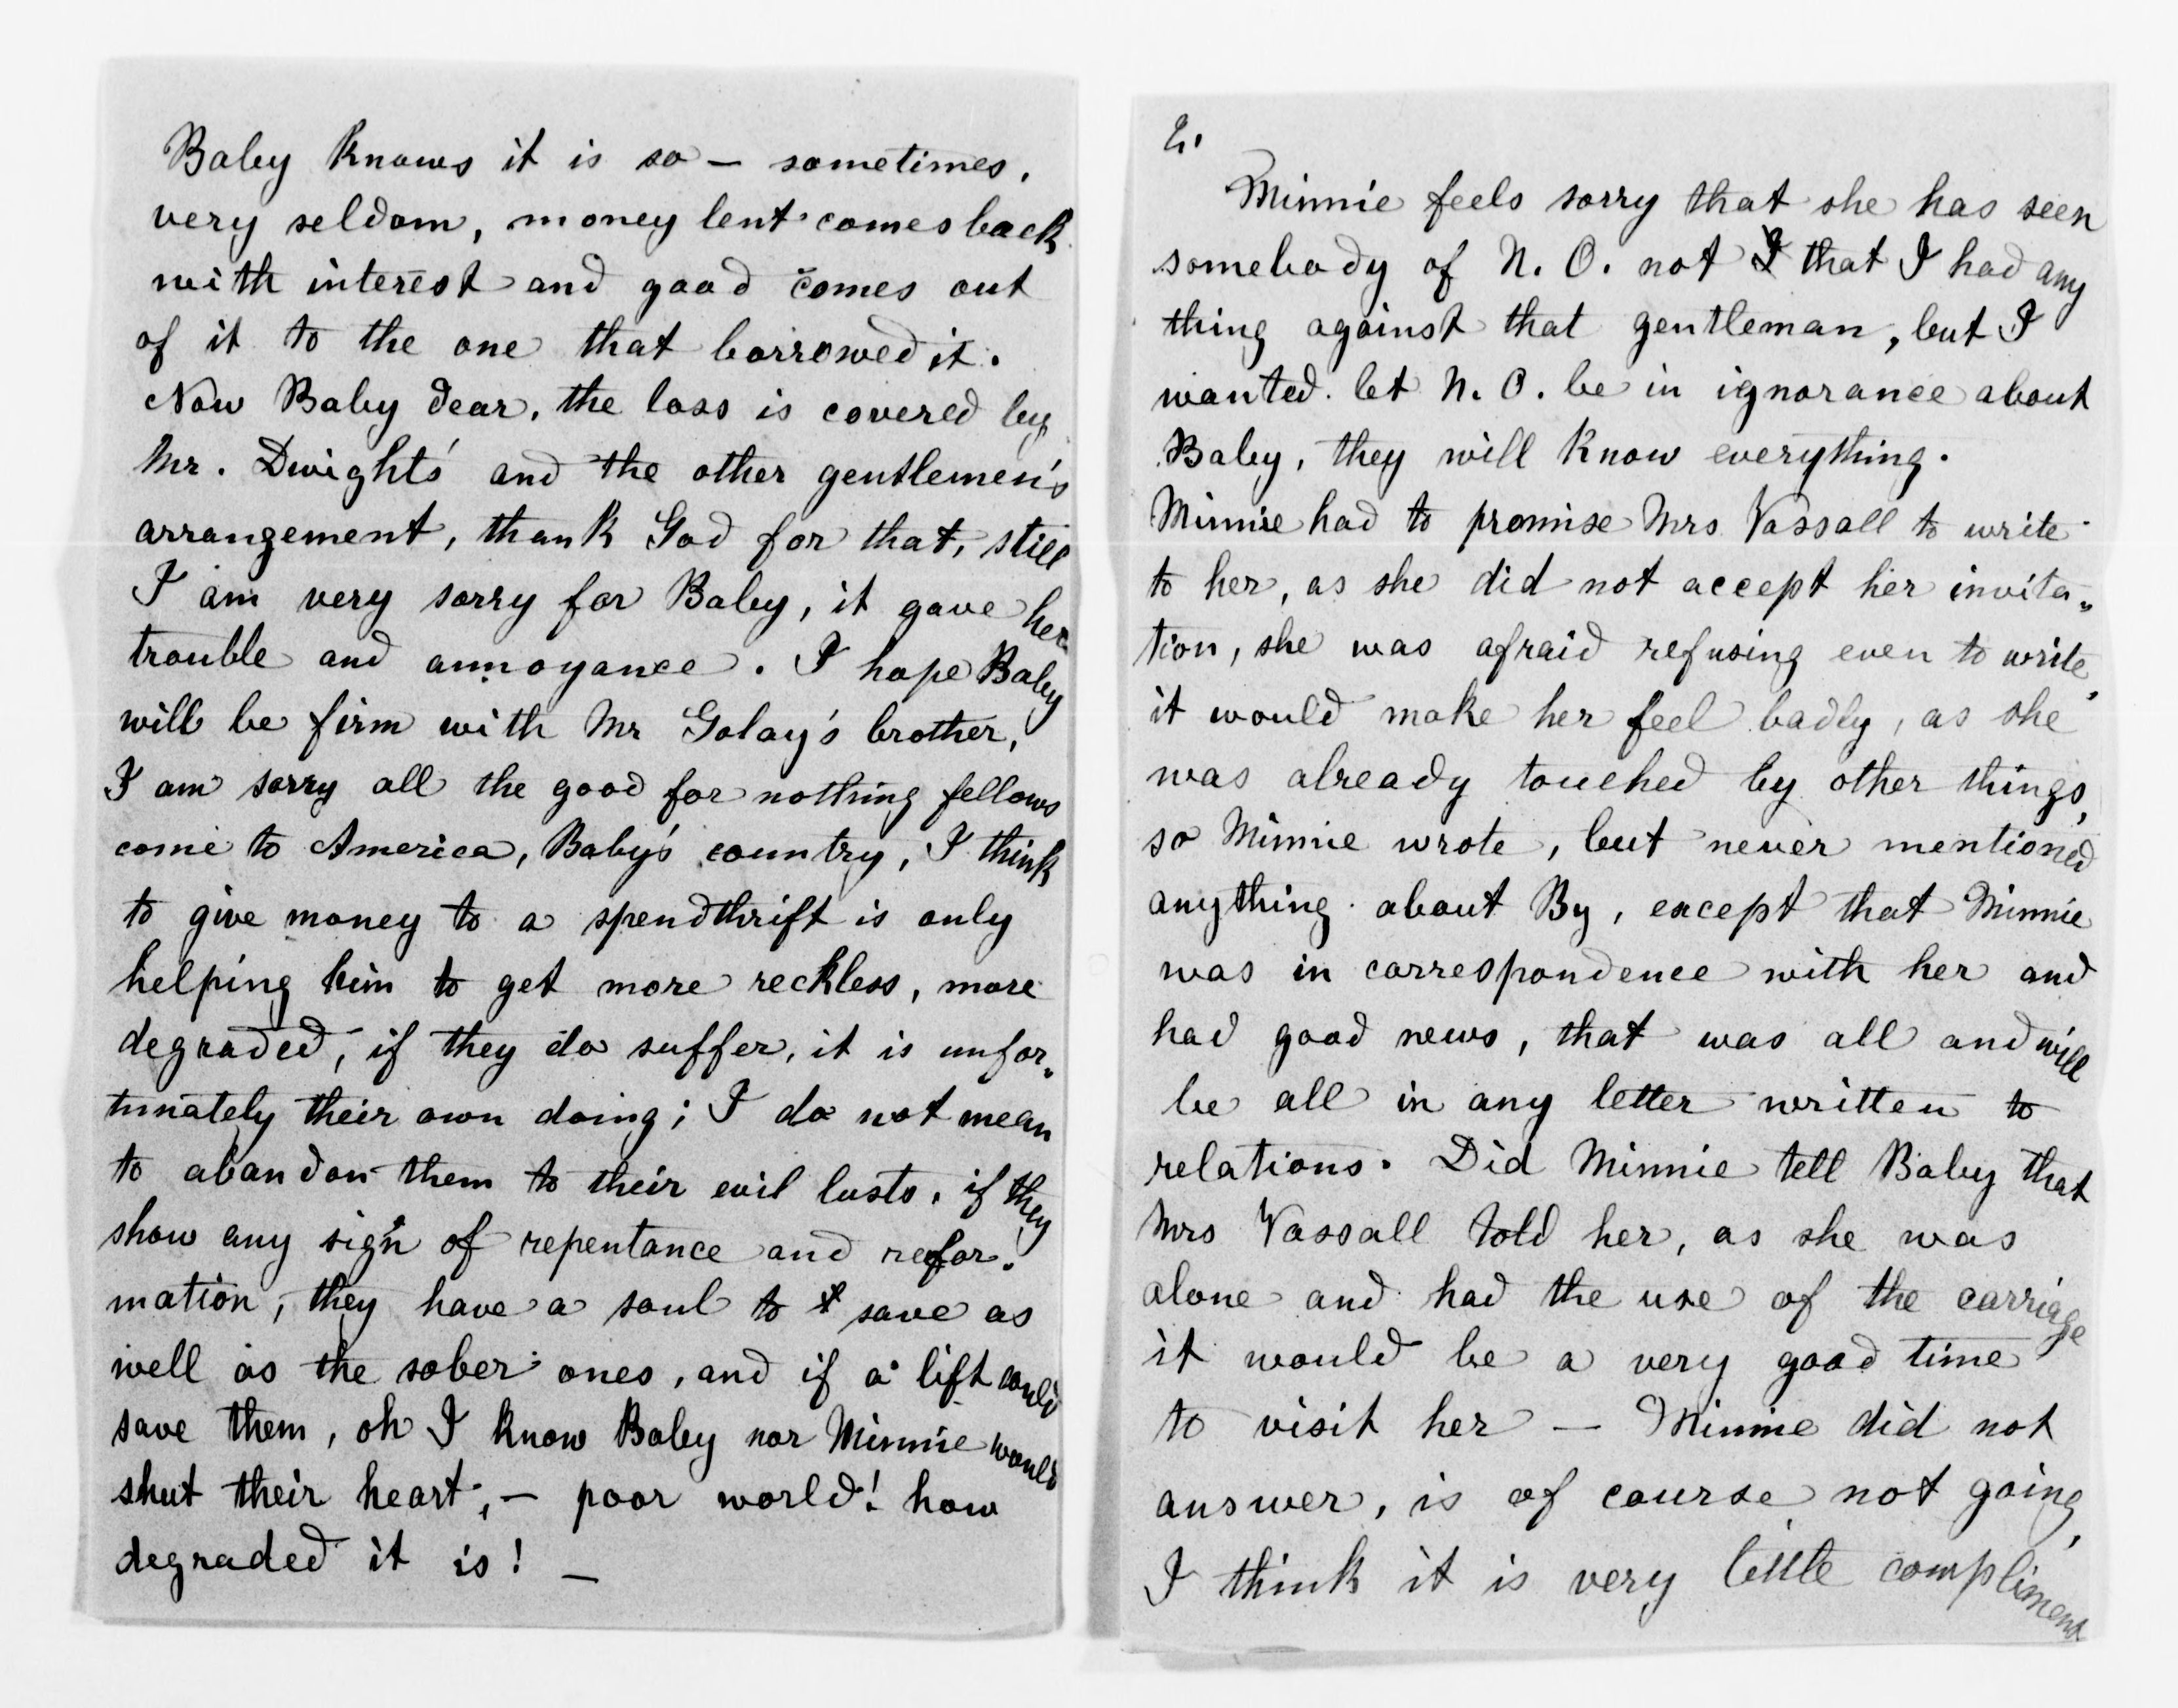 Baby knows it is so — sometimes,
very seldom, money lent comes back
with interest and good comes out
of it to the one that borrowed it.
Now Baby dear, the loss is covered by
Mr. Dwight's and the other gentlemen's
arrangement, thank God for that, still
I am very sorry for Baby, it gave her
trouble and annoyance. I hope Baby
will be firm with Mr Golay's brother,
I am sorry all the good for nothing fellows
come to America, Baby's country, I think
to give money to a spendthrift is only
helping him to get more reckless, more
degraded, if they do suffer, it is unfor„
tunately their own doing; I do not mean
to abandon them to their evil lusts, if they
show any sign of repentance and refor-
mation, they have a soul to save as
well as the sober ones, and if a lift could
save them, oh I know Baby nor Minnie would
shut their heart, — poor world! how
degraded it is! —
2.
Minnie feels sorry that she has seen
somebody of N. O. not that I had any
thing against that gentleman, but I
wanted let N. O. be in ignorance about
Baby, they will know everything.
Minnie had to promise Mrs Vassall to write
to her, as she did not accept her invita„
tion, she was afraid refusing even to write,
it would make her feel badly, as she
was already touched by other things,
so Minnie wrote, but never mentioned
anything about By, except that Minnie
was in correspondence with her and
had good news, that was all and will
be all in any letter written to
relations. Did Minnie tell Baby that
Mrs Vassall told her, as she was
alone and had the use of the carriage
it would be a very good time
to visit her — Minnie did not
answer, is of course not going,
I think it is very little compliment